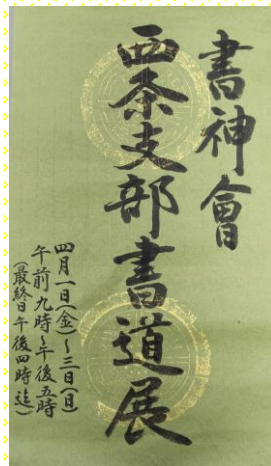 書神會
西条支部書道展
四月一日(金)~三日(日)
午前九時~午後五時
(最終日午後四時迄)